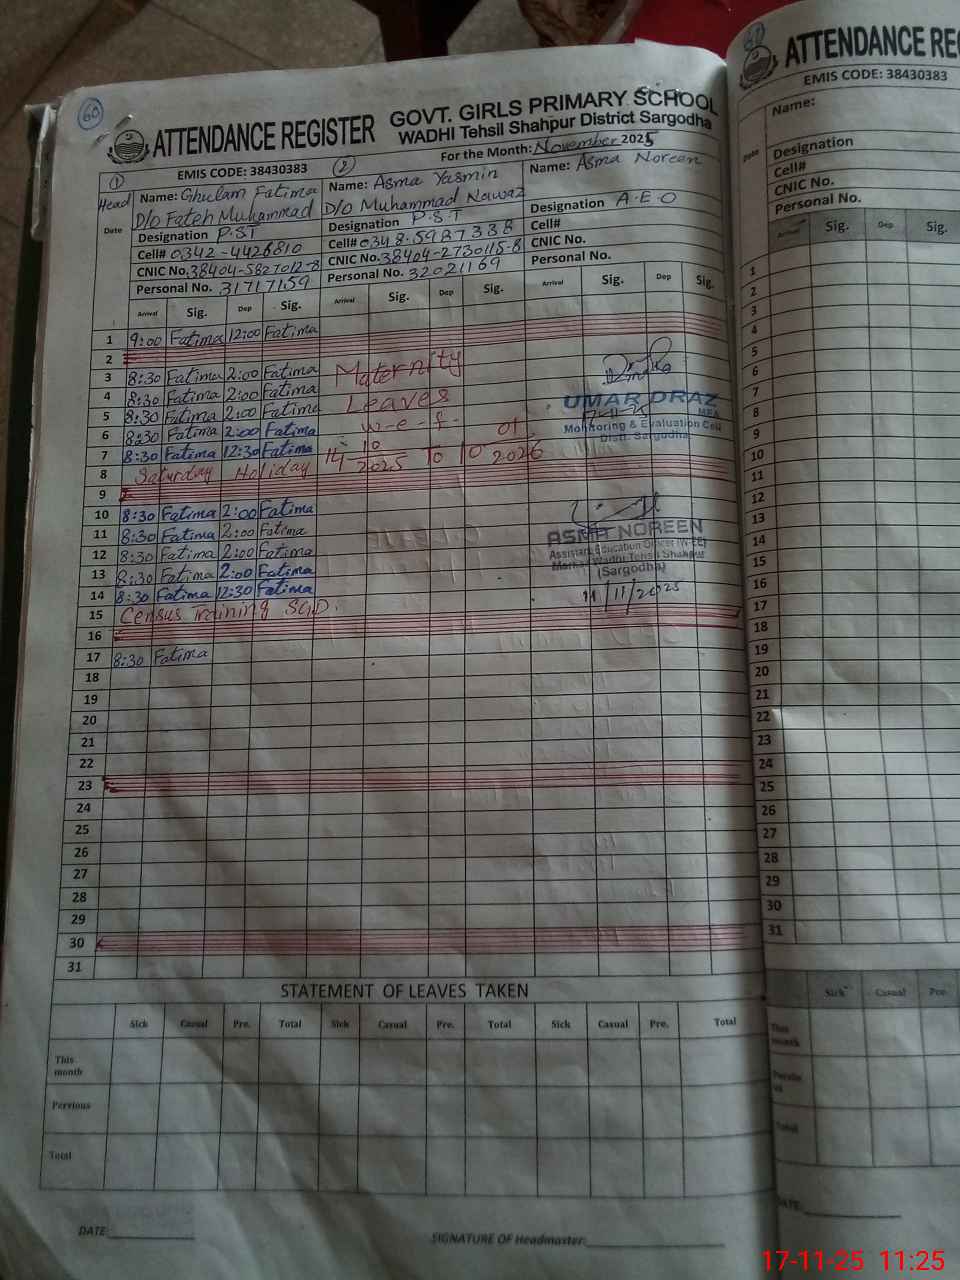 60
ATTENDANCE REGISTER
GOVT. GIRLS PRIMARY SCHOOL
WADHI Tehsil Shahpur District Sargodha
EMIS CODE: 38430383
For the Month: November 2025
1 Head
Name: Ghulam Fatima
D/o Fateh Muhammad
Designation P.S.T
Cell# 0342-4426810
CNIC No. 38404-5827012-8
Personal No. 31717159
2
Name: Asma Yasmin
D/o Muhammad Nawaz
Designation P.S.T
Cell# 0348-5927338
CNIC No. 38404-2730115-8
Personal No. 32021169
Name: Asma Noreen
Designation A.E.O
Cell#
CNIC No.
Personal No.
Date Arrival Sig. Dep Sig. Arrival Sig. Dep Sig. Arrival Sig. Dep Sig.
1 9:00 Fatima 12:00 Fatima
2
3 8:30 Fatima 2:00 Fatima
4 8:30 Fatima 2:00 Fatima
5 8:30 Fatima 2:00 Fatima
6 8:30 Fatima 2:00 Fatima
7 8:30 Fatima 12:30 Fatima
8 Saturday Holiday
9
10 8:30 Fatima 2:00 Fatima
11 8:30 Fatima 2:00 Fatima
12 8:30 Fatima 2:00 Fatima
13 8:30 Fatima 2:00 Fatima
14 8:30 Fatima 12:30 Fatima
15 Census Training
16
17 8:30 Fatima
18
19
20
21
22
23
24
25
26
27
28
29
30
31
Maternity
Leaves
w-e-f-
14 10 2025 To 10 01 2026
UMAR DRAZ
MEA
17-11-25
Monitoring & Evaluation Cell
Distt. Sargodha
ASMA NOREEN
Assistant Education Officer (W-EE)
Markaz Wadhi Tehsil Shahpur
(Sargodha)
11/11/2025
STATEMENT OF LEAVES TAKEN
Sick Casual Pre. Total Sick Casual Pre. Total Sick Casual Pre. Total
This month
Pervious
Total
DATE:
SIGNATURE OF Headmaster:
61
ATTENDANCE RE
EMIS CODE: 38430383
Name:
Date
Designation
Cell#
CNIC No.
Personal No.
Arrival Sig. Dep Sig.
1
2
3
4
5
6
7
8
9
10
11
12
13
14
15
16
17
18
19
20
21
22
23
24
25
26
27
28
29
30
31
Sick Casual Pre.
This month
Total
DATE:
17-11-25 11:25